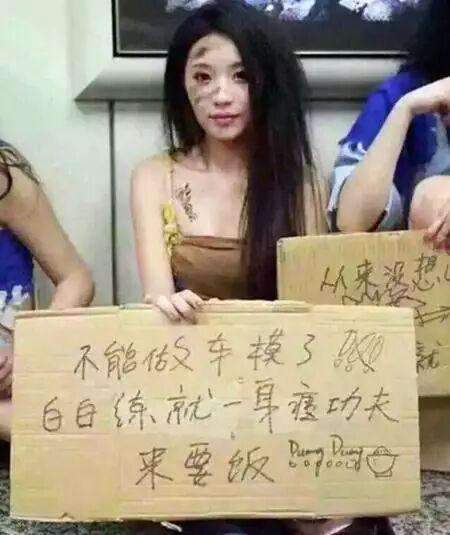 不能做车模了
白白练就一身瘦功夫
来要饭 Duang Duang
从来没想
就